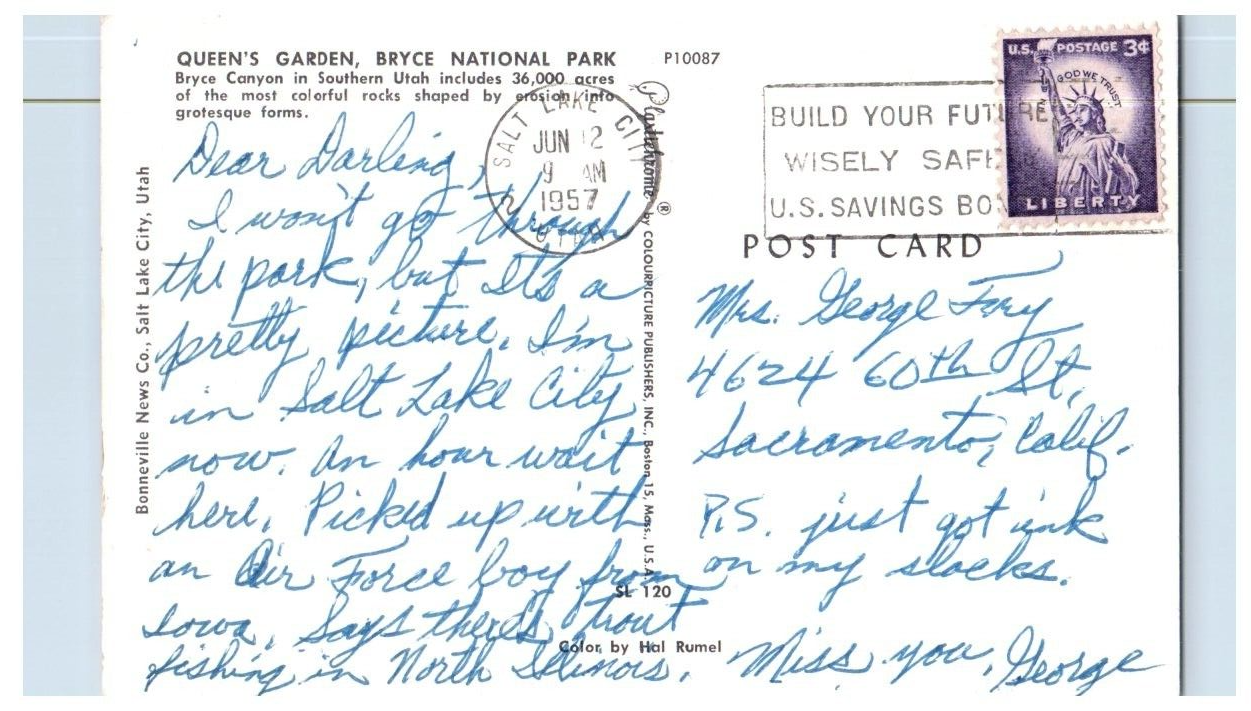 QUEEN'S GARDEN, BRYCE NATIONAL PARK
Bryce Canyon in Southern Utah includes 36,000 acres
of the most colorful rocks shaped by erosion into
grotesque forms.
P10087
Bonneville News Co., Salt Lake City, Utah
Dear Darling,
I won't go through
the park, but It's a
pretty picture. I'm
in Salt Lake City
now. An hour wait
here. Picked up with
an Air Force boy from
Iowa. Says there's trout
fishing in North Illinois.
SALT LAKE CITY
JUN 12
9 AM
1957
UTAH
Plastichrome ® by COLOURPICTURE PUBLISHERS, INC., Boston 15, Mass., U.S.A.
SL 120
Color by Hal Rumel
BUILD YOUR FUTURE
WISELY SAFE
U.S. SAVINGS BO
U.S. POSTAGE 3¢
IN GOD WE TRUST
LIBERTY
POST CARD
Mrs. George
4624 60th St,
Sacramento, Calif.
P.S. just got ink
on my slacks.
Miss you, George